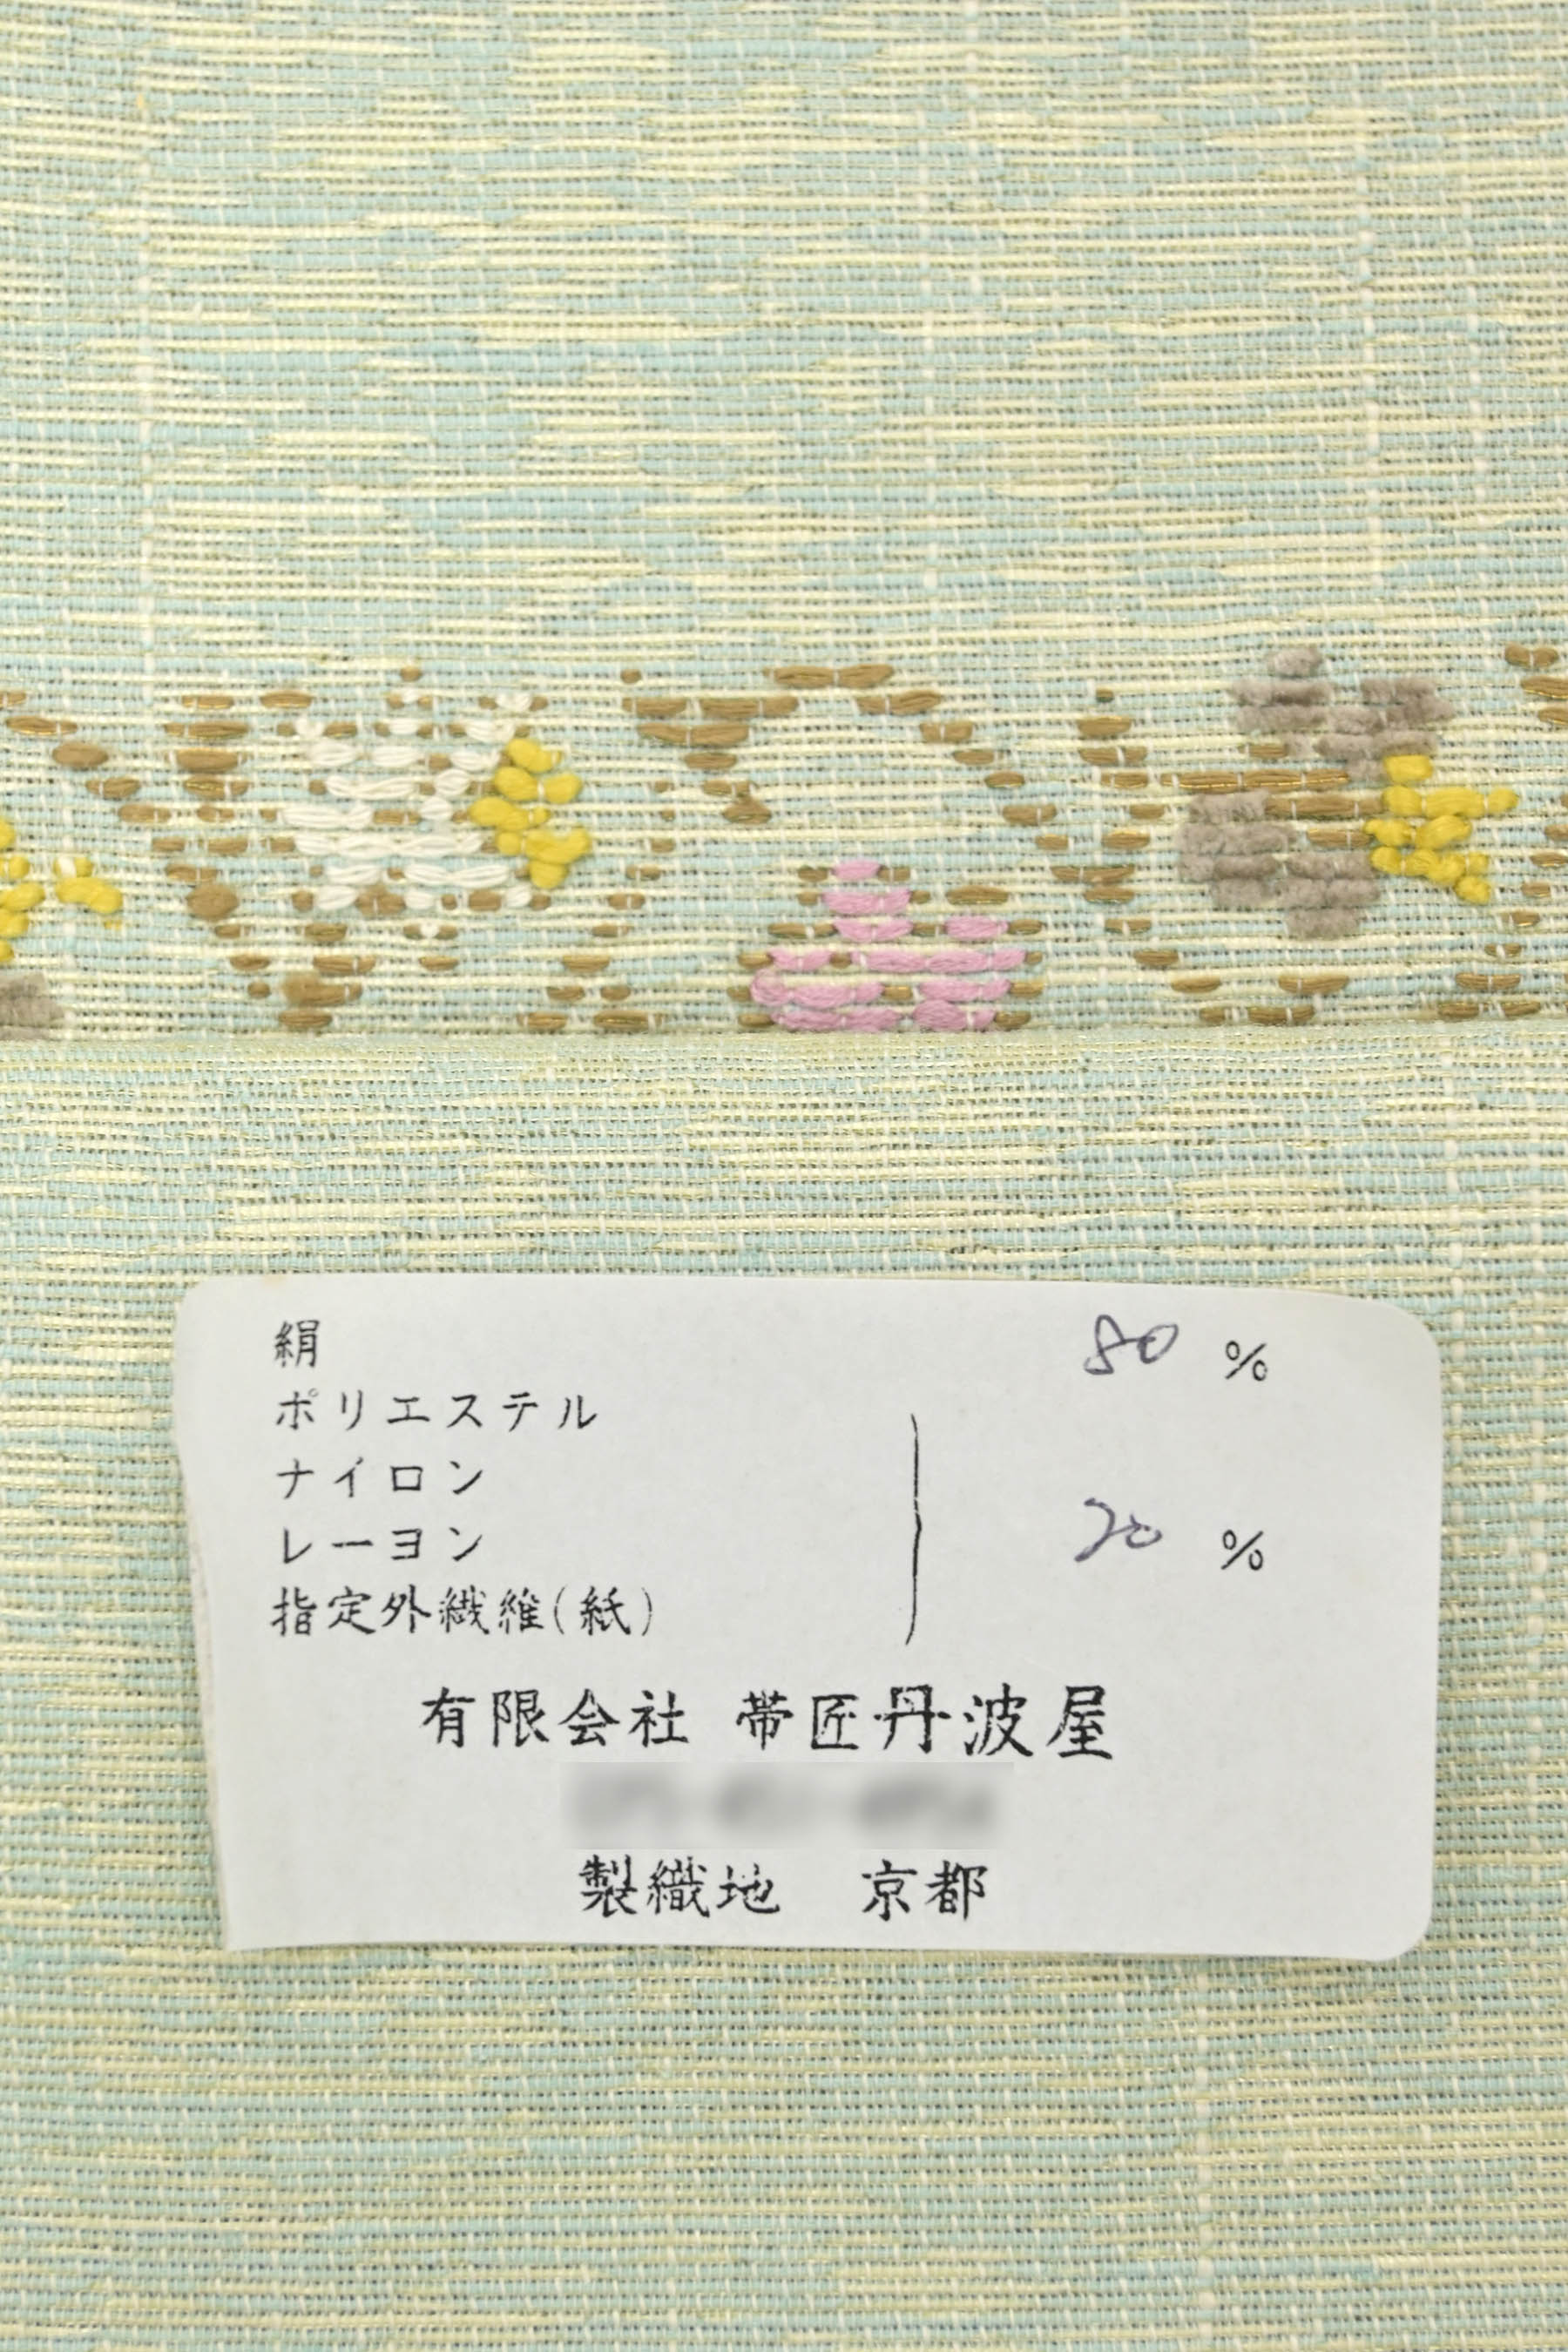 絹 80 %
ポリエステル
ナイロン
レーヨン 20 %
指定外繊維(紙)
有限会社 帯匠丹波屋
製織地 京都